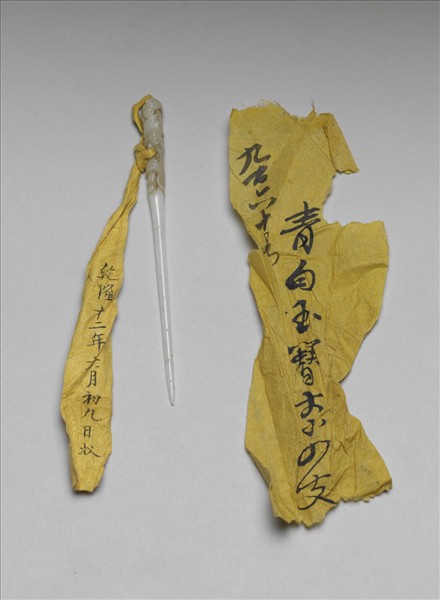 乾隆十二年六月初九日收
青白玉簪大小四支
九百六十号